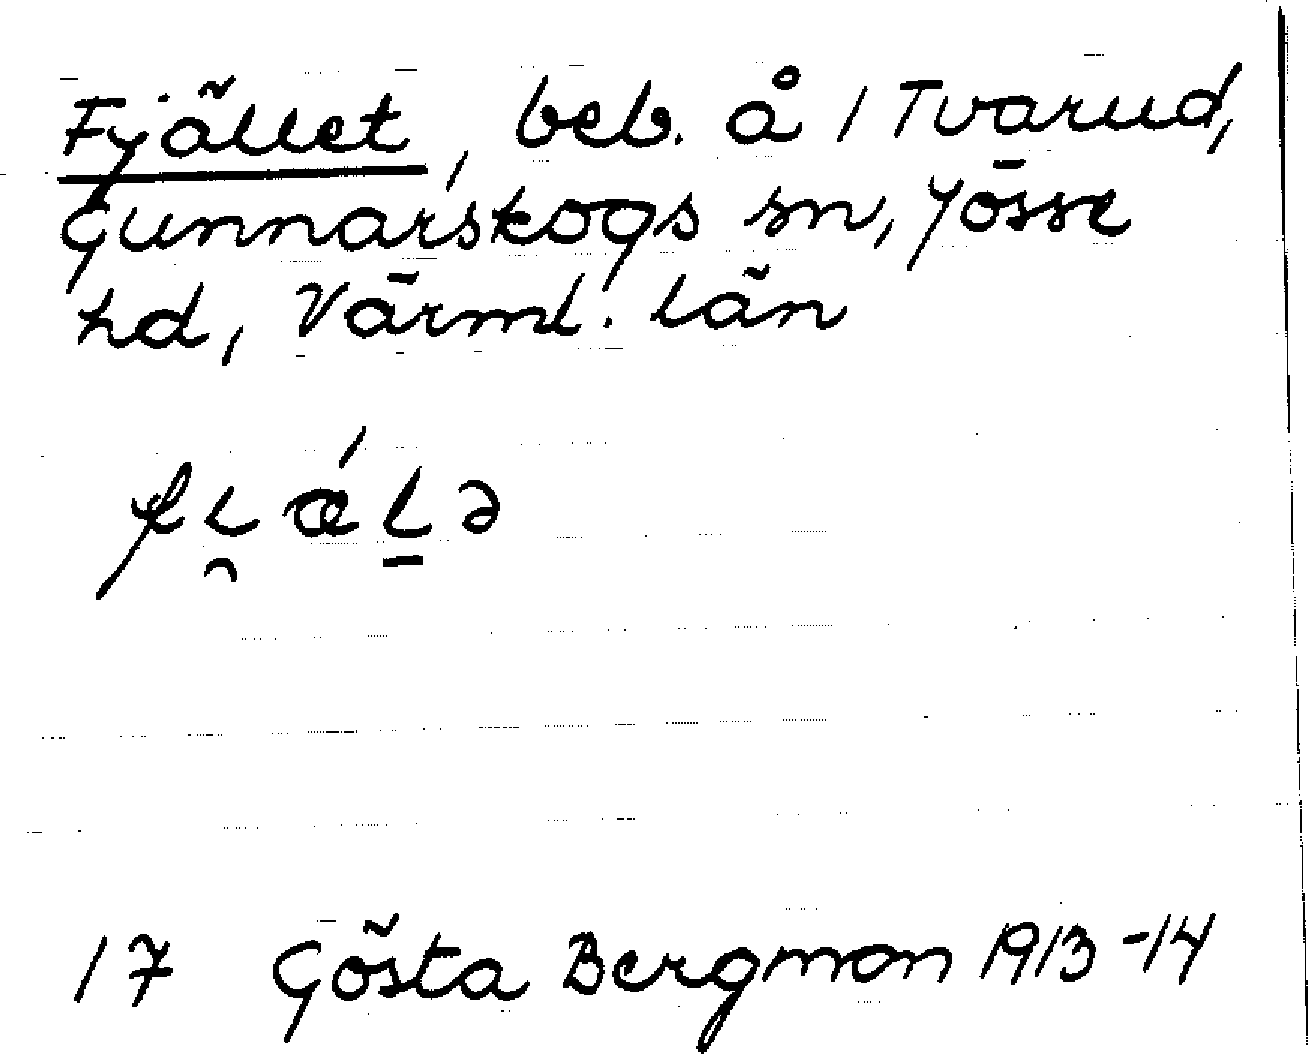 Fjället, beb. å 1 Tvarud,
Gunnarskogs sn, Jösse
hd, Värml. län
fi̯ǽl̠ə
17 Gösta Bergman 1913-14